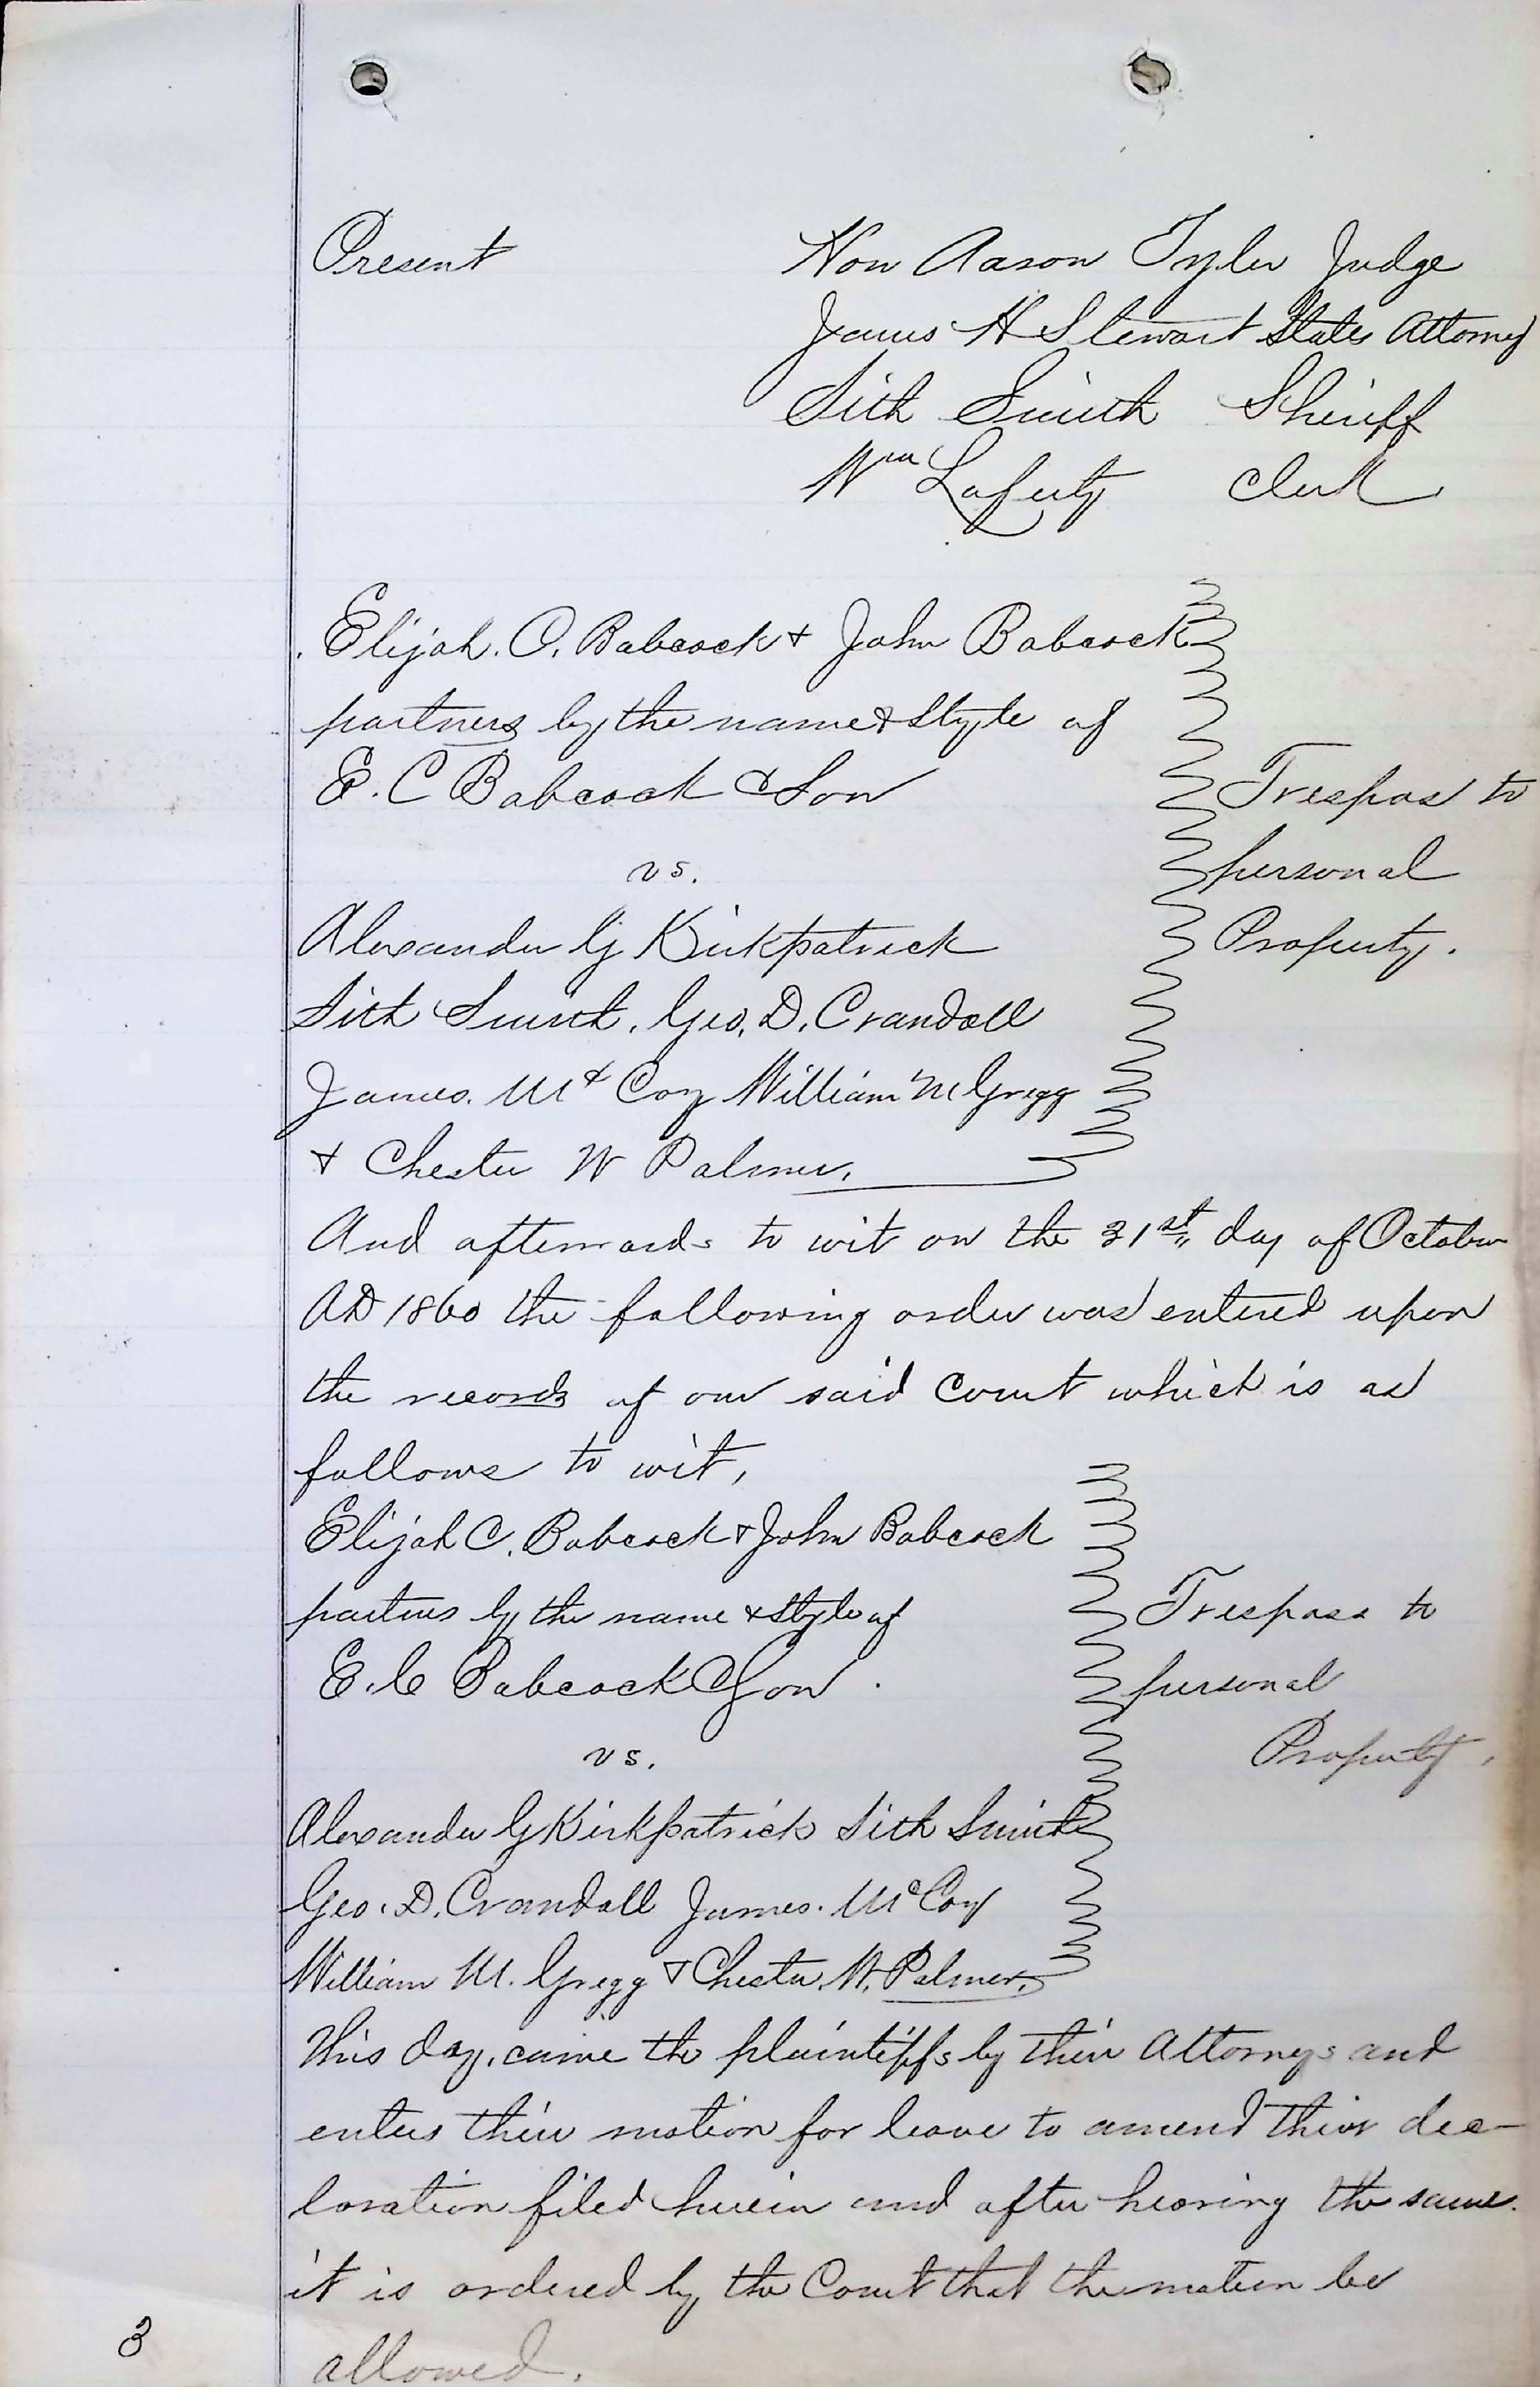 Present Hon Aaron Tyler Judge
James H Stewart States Attorney
Sith Smith Sheriff
Wm Laferty Clerk
Elijah. C. Babcock & John Babcock
partners by the name & Style of
E. C Babcock & Son Trespass to
vs. personal
Alexander G Kirkpatrick Property.
Sith Smith. Geo. D. Crandall
James. Mc Coy William M Gregg
& Chester W Palmer.
And afterwards to wit on the 31st day of October
AD 1860 the following order was entered upon
the records of our said Court which is as
follows to wit,
Elijah C. Babcock & John Babcock
partners by the name & Style of Trespass to
E. C Babcock & Son. personal
vs. Property.
Alexander G Kirkpatrick Sith Smith
Geo. D. Crandall James. McCoy
William M. Gregg & Chester W. Palmer.
This day, came the plaintiffs by their Attorneys and
enters their motion for leave to amend their dec-
laration filed herein and after hearing the same.
it is ordered by the Court that the motion be
allowed.
3